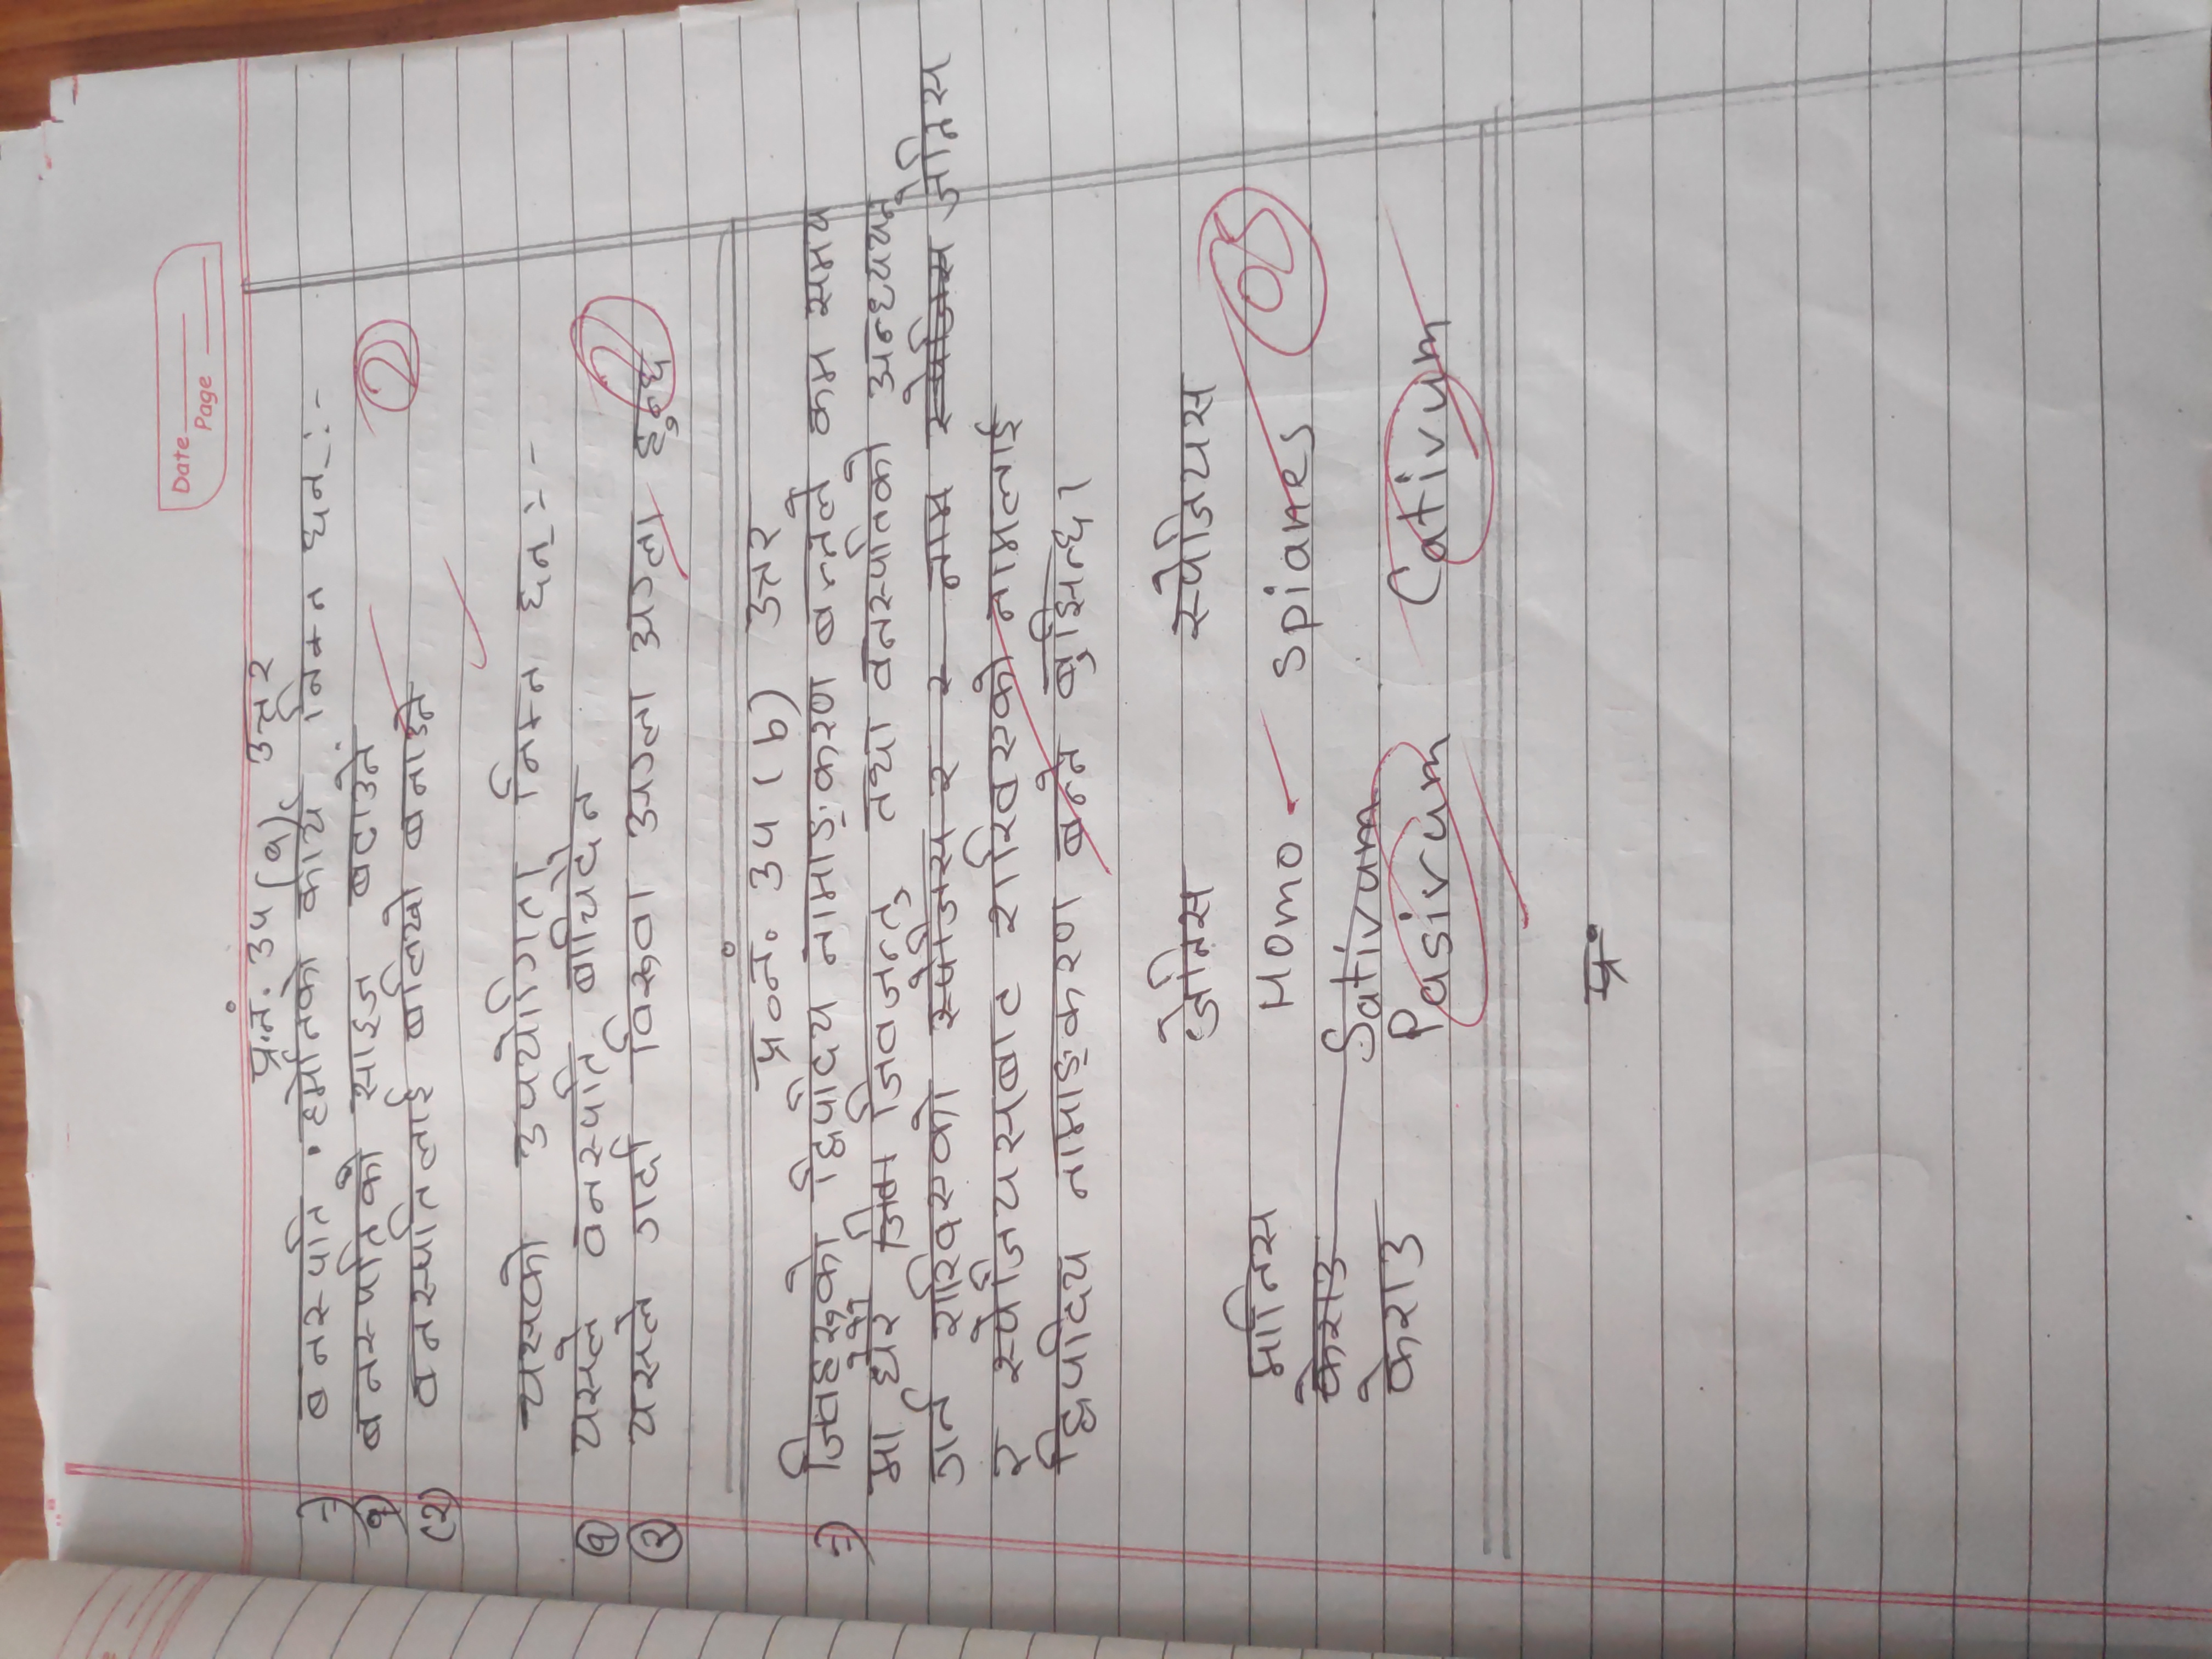 Date
Page
प्र.नं. ३५ (a) उत्तर
⇒ बनस्पति हर्मोनको कार्य निम्न छन् :-
१) बनस्पतिको साइज बटाउने
(२) वनस्पतिलाई बलियो बनाउने
2
यसको उपयोगिता निम्न छन् :-
१ यसले वनस्पति बाचिदैन
२ यसले गर्दा विरुवा अग्ला अग्ला हुन्छ
प्र०नं० ३५ (b) उत्तर
⇒ जिवहरुको द्विपदिय नामाङ्करण बन्नले कम समय
मा धेरै जिवजन्तु तथा वनस्पतिको अन्ध्ययन
गर्न राखिएको स्पेजिस र र नाम स्पेजिस जेनिस
र स्पेजियसबाट राखिएको नामलाई
द्विपदिय नामाङ्करण बन्ने बुझिन्छ।
जेनिस स्पेजियस
मानिस Homo spianes
केराउ Sativum
केराउ Pasivum Cativum
प्र०